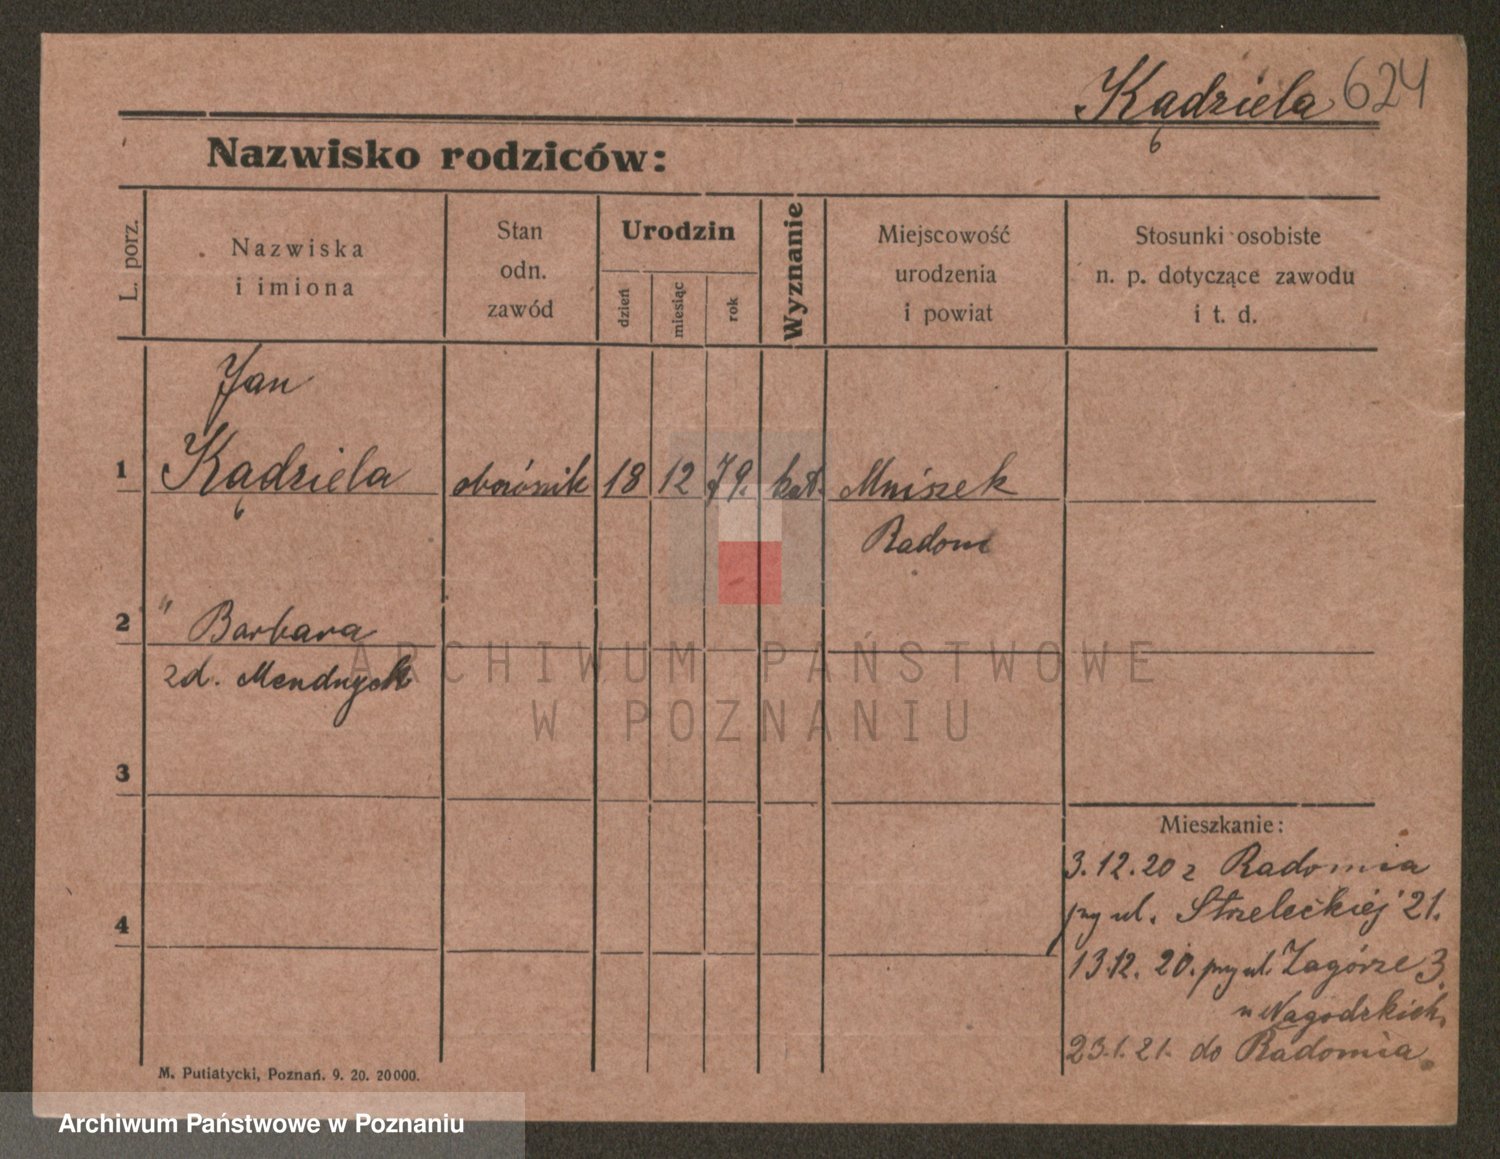 Kądziela 624
Nazwisko rodziców:
L. porz.
Nazwiska
i imiona
Stan
odn.
zawód
Urodzin
dzień
miesiąc
rok
Wyznanie
Miejscowość
urodzenia
i powiat
Stosunki osobiste
n. p. dotyczące zawodu
i t. d.
Jan
1 Kądziela 18 12 79. kat. Mniszek
Radom
2 " Barbara
zd.
ARCHIWUM PAŃSTWOWE
W POZNANIU
3
Mieszkanie:
3.12.20 z Radomia
przy ul. Strzeleckiej 21.
4
13.12.20. przy ul. Zagórze 3.
u Nagodzkich.
23.1.21. do Radomia.
M. Putiatycki, Poznań. 9. 20. 20000.
Archiwum Państwowe w Poznaniu